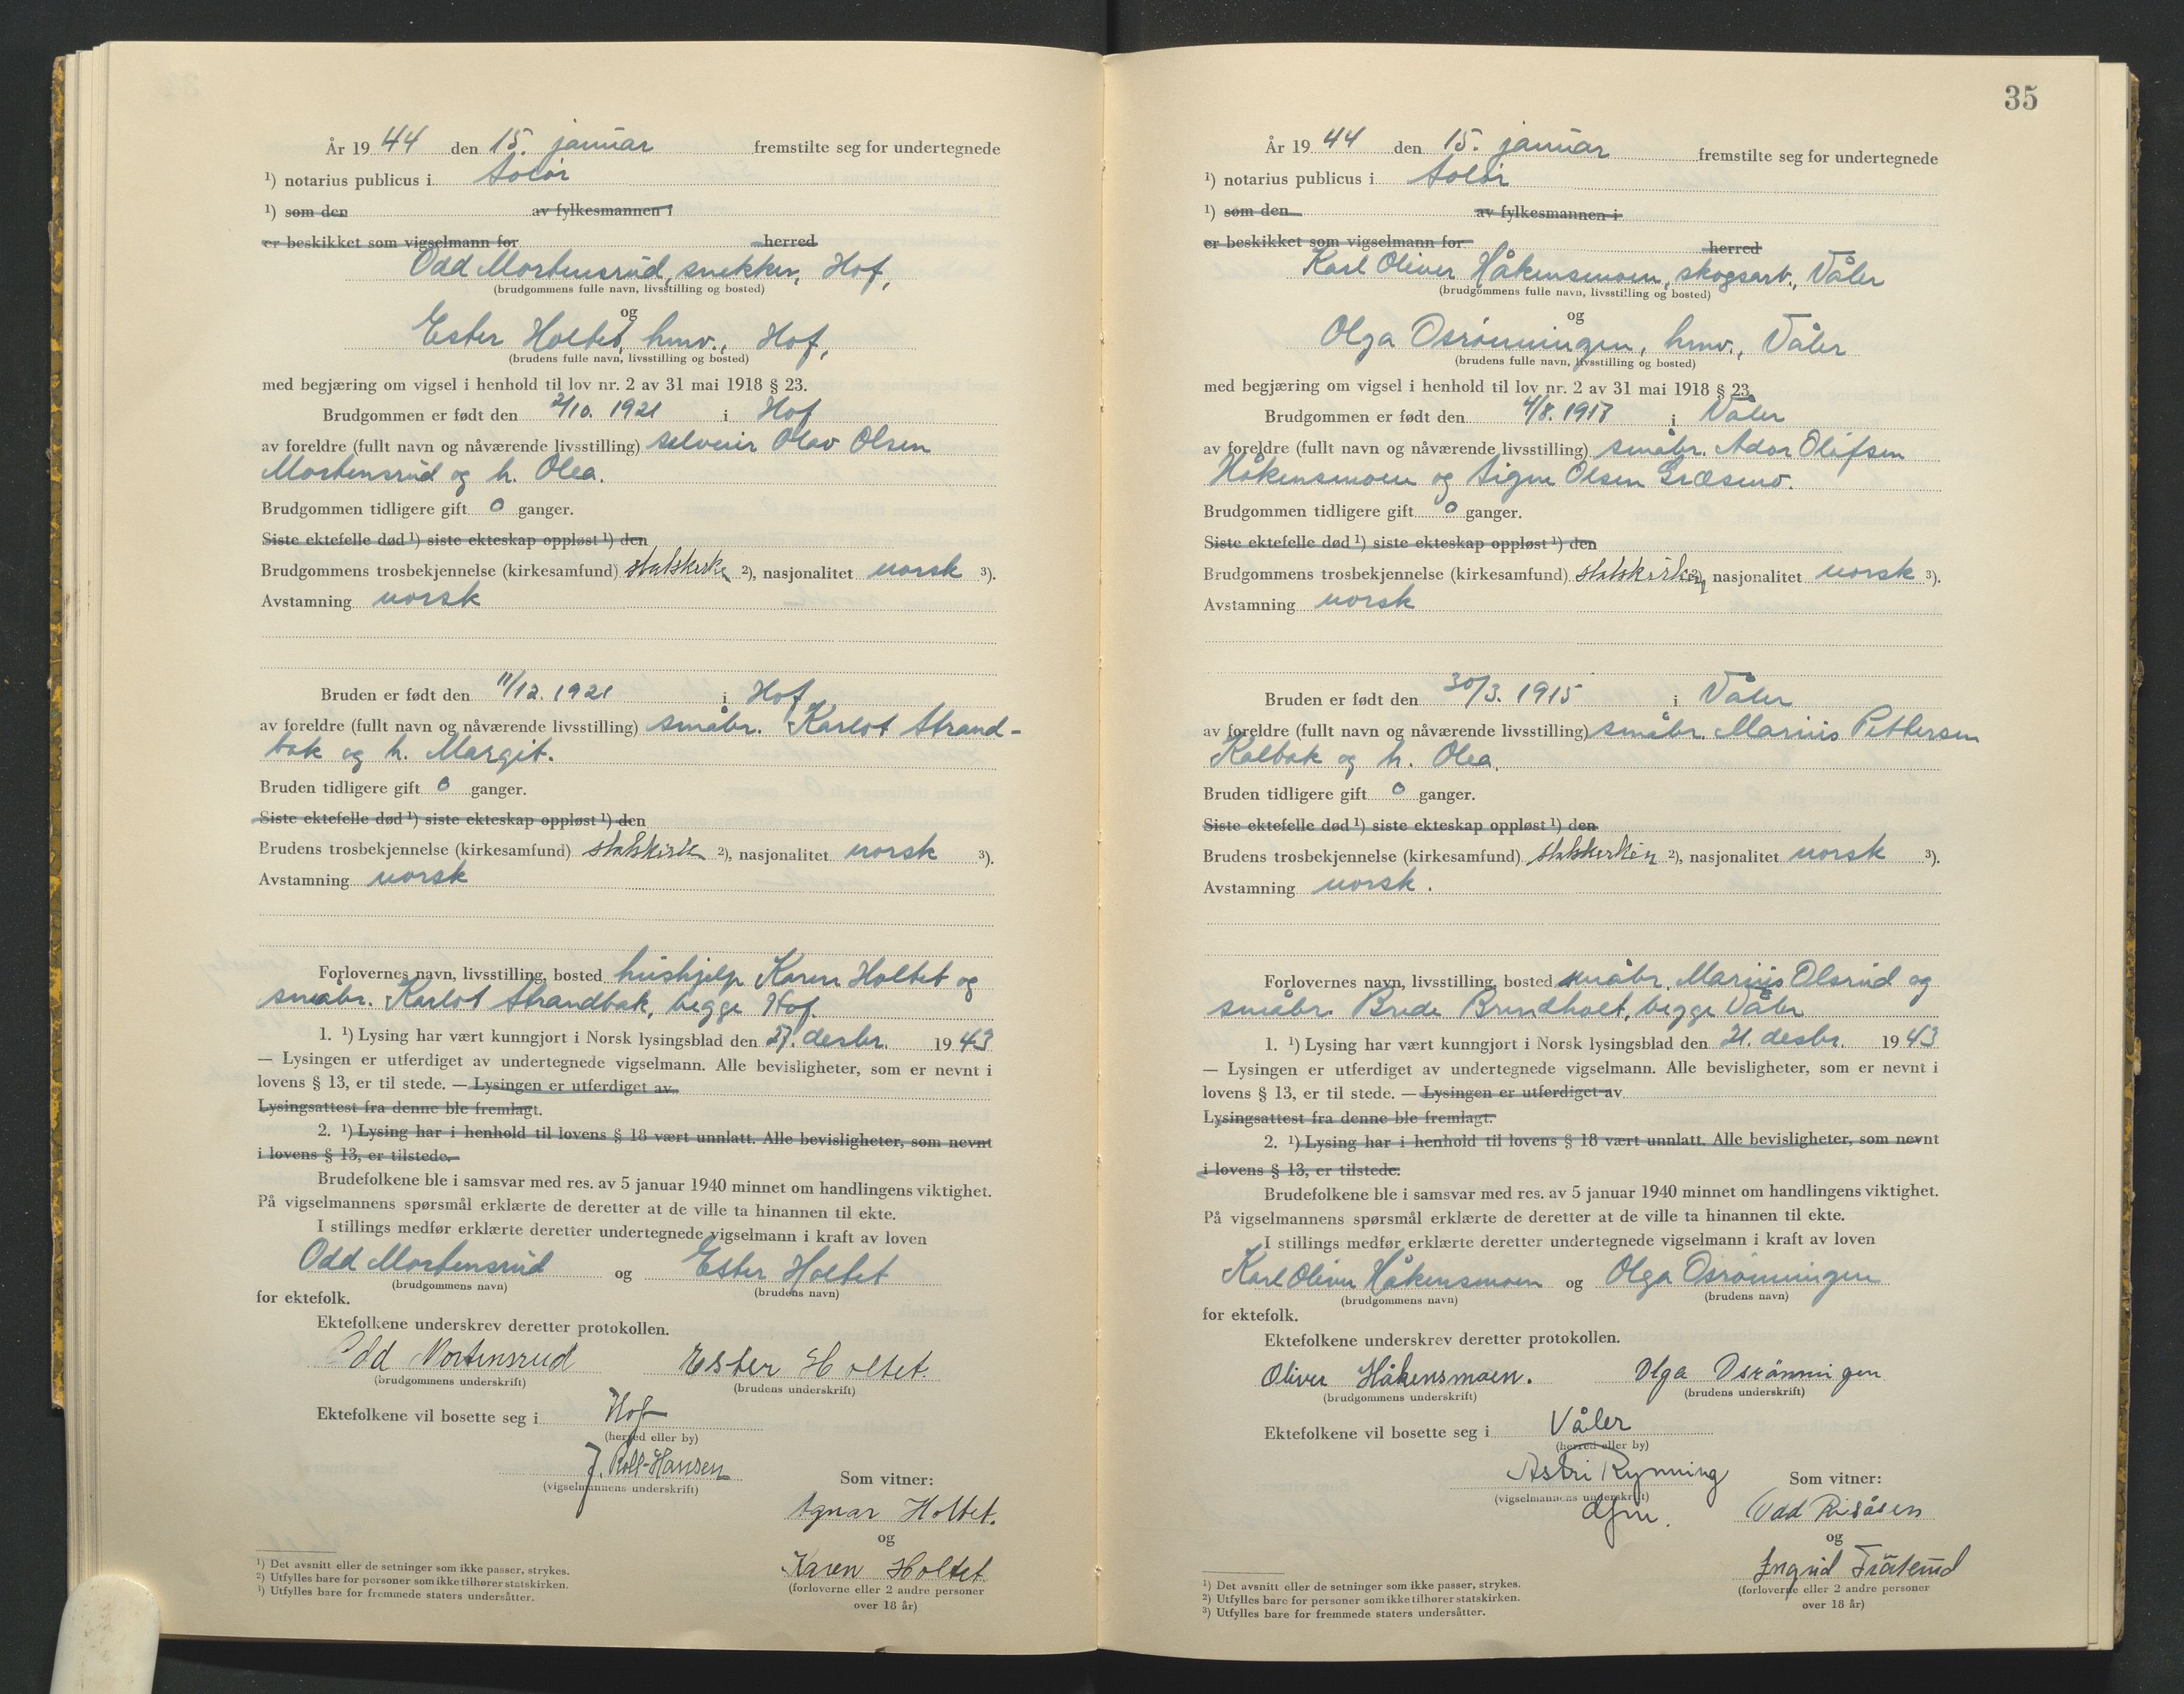 År 1944 den 15. januar fremstilte seg for undertegnede
¹) notarius publicus i Solør
¹) som den av fylkesmannen i
er beskikket som vigselmann for herred
Odd Mortensrud, snekker, Hof,
(brudgommens fulle navn, livsstilling og bosted)
og
Ester Holtet, hmv., Hof,
(brudens fulle navn, livsstilling og bosted)
med begjæring om vigsel i henhold til lov nr. 2 av 31 mai 1918 § 23.
Brudgommen er født den 2/10. 1921 i Hof
av foreldre (fullt navn og nåværende livsstilling) selveier Olav Olsen
Mortensrud og h. Olea.
Brudgommen tidligere gift 0 ganger.
Siste ektefelle død ¹) siste ekteskap oppløst ¹) den
Brudgommens trosbekjennelse (kirkesamfund) statskirken ²), nasjonalitet norsk ³).
Avstamning norsk
Bruden er født den 11/12. 1921 i Hof
av foreldre (fullt navn og nåværende livsstilling) småbr. Karlot Strand-
bak og h. Margit.
Bruden tidligere gift 0 ganger.
Siste ektefelle død ¹) siste ekteskap oppløst ¹) den
Brudens trosbekjennelse (kirkesamfund) statskirken ²), nasjonalitet norsk ³).
Avstamning norsk
Forlovernes navn, livsstilling, bosted hushjelp Karen Holtet og
småbr. Karlot Strandbak, begge Hof.
1. ¹) Lysing har vært kunngjort i Norsk lysingsblad den desbr. 1943
— Lysingen er utferdiget av undertegnede vigselmann. Alle bevisligheter, som er nevnt i
lovens § 13, er til stede. — Lysingen er utferdiget av
Lysingsattest fra denne ble fremlagt.
2. ¹) Lysing har i henhold til lovens § 18 vært unnlatt. Alle bevisligheter, som nevnt
i lovens § 13, er tilstede.
Brudefolkene ble i samsvar med res. av 5 januar 1940 minnet om handlingens viktighet.
På vigselmannens spørsmål erklærte de deretter at de ville ta hinannen til ekte.
I stillings medfør erklærte deretter undertegnede vigselmann i kraft av loven
Odd Mortensrud og Ester Holtet
(brudgommens navn) (brudens navn)
for ektefolk.
Ektefolkene underskrev deretter protokollen.
Odd Mortensrud Ester Holtet.
(brudgommens underskrift) (brudens underskrift)
Ektefolkene vil bosette seg i Hof
(herred eller by)
J. Roll-Hansen
(vigselmannens underskrift)
Som vitner:
Agnar Holtet.
og
Karen Holtet
(forloverne eller 2 andre personer
over 18 år)
¹) Det avsnitt eller de setninger som ikke passer, strykes.
²) Utfylles bare for personer som ikke tilhører statskirken.
³) Utfylles bare for fremmede staters undersåtter.
35
År 1944 den 15. januar fremstilte seg for undertegnede
¹) notarius publicus i Solør
¹) som den av fylkesmannen i
er beskikket som vigselmann for herred
Karl Oliver Håkensmoen, skogsarb., Våler
(brudgommens fulle navn, livsstilling og bosted)
og
Olga Osrønningen, hmv., Våler
(brudens fulle navn, livsstilling og bosted)
med begjæring om vigsel i henhold til lov nr. 2 av 31 mai 1918 § 23.
Brudgommen er født den 4/8. i Våler
av foreldre (fullt navn og nåværende livsstilling) småbr. Ador Olufsen
Håkensmoen og Signe Olsen Græsmo.
Brudgommen tidligere gift 0 ganger.
Siste ektefelle død ¹) siste ekteskap oppløst ¹) den
Brudgommens trosbekjennelse (kirkesamfund) statskirken ²), nasjonalitet norsk ³).
Avstamning norsk
Bruden er født den 30/3. 1915 i Våler
av foreldre (fullt navn og nåværende livsstilling) småbr. Marius Pettersen
Kalbak og h. Olea.
Bruden tidligere gift 0 ganger.
Siste ektefelle død ¹) siste ekteskap oppløst ¹) den
Brudens trosbekjennelse (kirkesamfund) statskirken ²), nasjonalitet norsk ³).
Avstamning norsk.
Forlovernes navn, livsstilling, bosted småbr. Marius Olsrud og
småbr. Brede Brendholt, begge Våler
1. ¹) Lysing har vært kunngjort i Norsk lysingsblad den 21. desbr. 1943
— Lysingen er utferdiget av undertegnede vigselmann. Alle bevisligheter, som er nevnt i
lovens § 13, er til stede. — Lysingen er utferdiget av
Lysingsattest fra denne ble fremlagt.
2. ¹) Lysing har i henhold til lovens § 18 vært unnlatt. Alle bevisligheter, som nevnt
i lovens § 13, er tilstede.
Brudefolkene ble i samsvar med res. av 5 januar 1940 minnet om handlingens viktighet.
På vigselmannens spørsmål erklærte de deretter at de ville ta hinannen til ekte.
I stillings medfør erklærte deretter undertegnede vigselmann i kraft av loven
Karl Oliver Håkensmoen og Olga Osrønningen
(brudgommens navn) (brudens navn)
for ektefolk.
Ektefolkene underskrev deretter protokollen.
Oliver Håkensmoen. Olga Osrønningen
(brudgommens underskrift) (brudens underskrift)
Ektefolkene vil bosette seg i Våler
(herred eller by)
Astri Rynning
(vigselmannens underskrift)
dfm.
Som vitner:
Odd Risåsen
og
Ingrid
(forloverne eller 2 andre personer
over 18 år)
¹) Det avsnitt eller de setninger som ikke passer, strykes.
²) Utfylles bare for personer som ikke tilhører statskirken.
³) Utfylles bare for fremmede staters undersåtter.